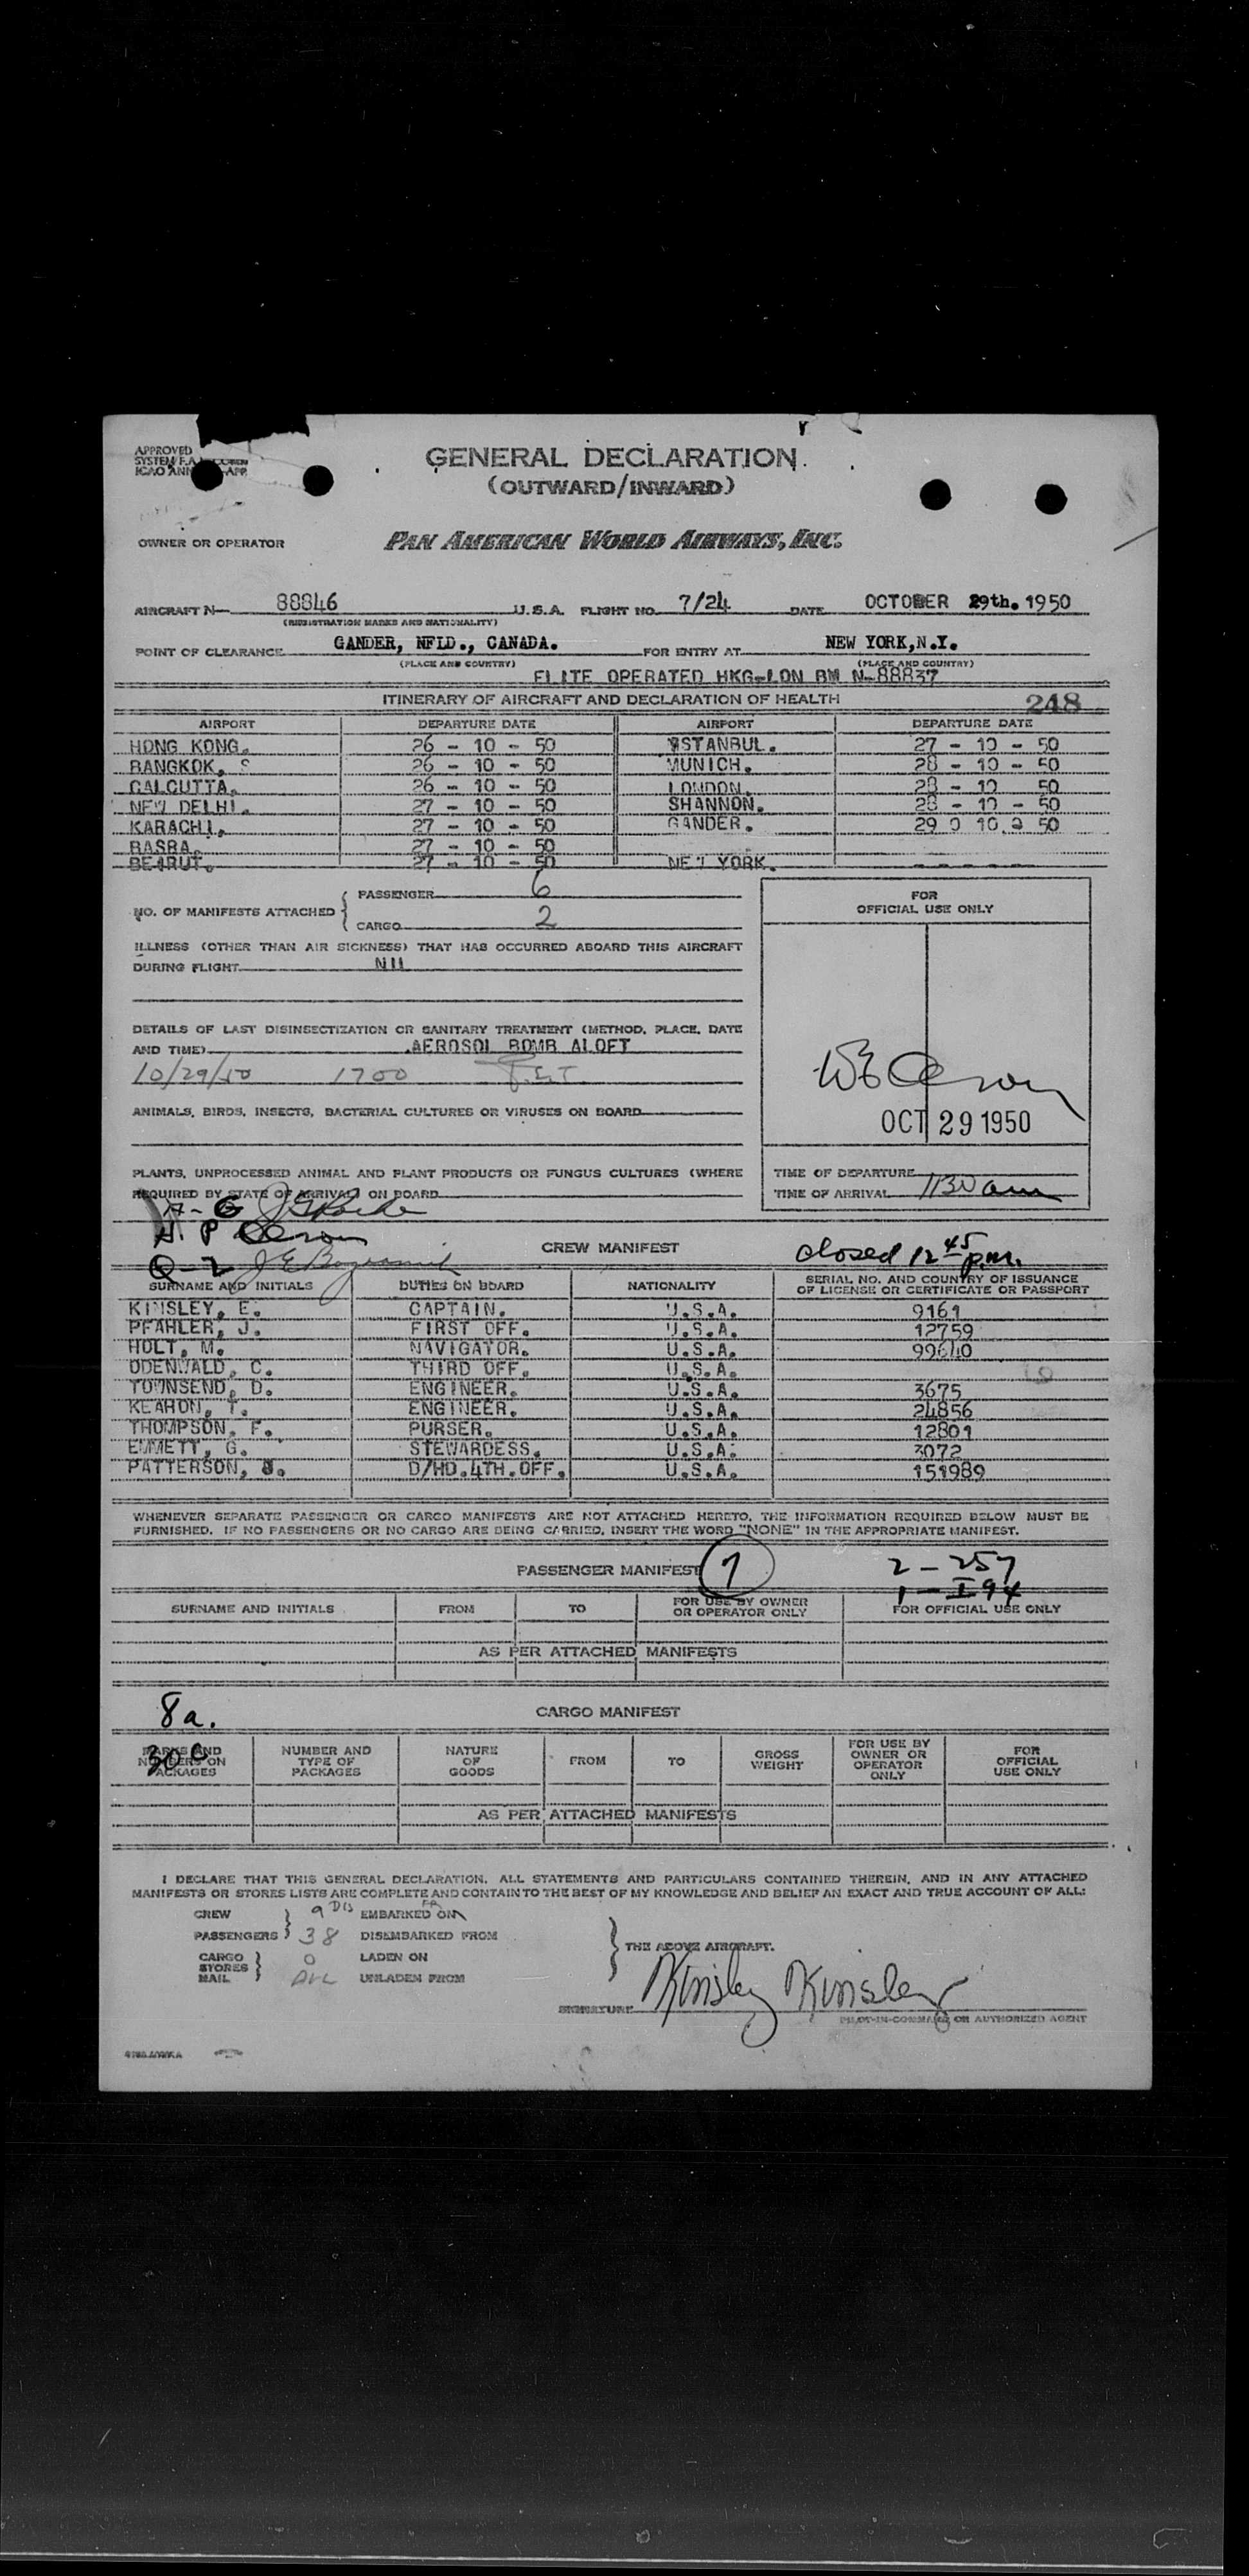 APPROVED
SYSTEM F.A.
ICAO ANN APP.
GENERAL DECLARATION
(OUTWARD/INWARD)
OWNER OR OPERATOR PAN AMERICAN WORLD AIRWAYS, INC.
AIRCRAFT N— 88846 U.S.A. FLIGHT NO. 7/24 DATE OCTOBER 29th. 1950
(REGISTRATION MARKS AND NATIONALITY)
POINT OF CLEARANCE GANDER, NFLD., CANADA. FOR ENTRY AT NEW YORK,N.Y.
(PLACE AND COUNTRY) (PLACE AND COUNTRY)
FLITE OPERATED HKG-LON BM N-88837
ITINERARY OF AIRCRAFT AND DECLARATION OF HEALTH 248
AIRPORT DEPARTURE DATE AIRPORT DEPARTURE DATE
HONG KONG. 26 - 10 - 50 ISTANBUL. 27 - 10 - 50
BANGKOK. S 26 - 10 - 50 MUNICH. 28 - 10 - 50
CALCUTTA. 26 - 10 - 50 LONDON. 28 - 10 50
NEW DELHI. 27 - 10 - 50 SHANNON. 28 - 10 - 50
KARACHI. 27 - 10 - 50 GANDER. 29 0 10 0 50
BASRA. 27 - 10 - 50
BEIRUT. 27 - 10 - 50 NEW YORK. - - - - -
NO. OF MANIFESTS ATTACHED
PASSENGER 6
CARGO 2
FOR
OFFICIAL USE ONLY
ILLNESS (OTHER THAN AIR SICKNESS) THAT HAS OCCURRED ABOARD THIS AIRCRAFT
DURING FLIGHT NIL
DETAILS OF LAST DISINSECTIZATION OR SANITARY TREATMENT (METHOD, PLACE, DATE
AND TIME) AEROSOL BOMB ALOFT
10/29/50 1700
ANIMALS, BIRDS, INSECTS, BACTERIAL CULTURES OR VIRUSES ON BOARD
OCT 29 1950
PLANTS, UNPROCESSED ANIMAL AND PLANT PRODUCTS OR FUNGUS CULTURES (WHERE
REQUIRED BY STATE OF ARRIVAL) ON BOARD
TIME OF DEPARTURE
TIME OF ARRIVAL 1130 am
CREW MANIFEST closed 12 45 p.m.
SURNAME AND INITIALS DUTIES ON BOARD NATIONALITY SERIAL NO. AND COUNTRY OF ISSUANCE
OF LICENSE OR CERTIFICATE OR PASSPORT
KINSLEY, E. CAPTAIN. U.S.A. 9161
PFAHLER, J. FIRST OFF. U.S.A. 12759
HOLT, M. NAVIGATOR. U.S.A. 99640
ODENWALD, C. THIRD OFF. U.S.A.
TOWNSEND, D. ENGINEER. U.S.A. 3675
KEARON, T. ENGINEER. U.S.A. 24856
THOMPSON, F. PURSER. U.S.A. 12801
EMMETT, G. STEWARDESS. U.S.A. 3072
PATTERSON, J. D/HD.4TH.OFF. U.S.A. 151989
WHENEVER SEPARATE PASSENGER OR CARGO MANIFESTS ARE NOT ATTACHED HERETO, THE INFORMATION REQUIRED BELOW MUST BE
FURNISHED. IF NO PASSENGERS OR NO CARGO ARE BEING CARRIED, INSERT THE WORD "NONE" IN THE APPROPRIATE MANIFEST.
PASSENGER MANIFEST 7 2 - 257
1 - I 94
SURNAME AND INITIALS FROM TO FOR USE BY OWNER
OR OPERATOR ONLY FOR OFFICIAL USE ONLY
AS PER ATTACHED MANIFESTS
8a. CARGO MANIFEST
30c
MARKS AND
NUMBERS ON
PACKAGES
NUMBER AND
TYPE OF
PACKAGES
NATURE
OF
GOODS
FROM
TO
GROSS
WEIGHT
FOR USE BY
OWNER OR
OPERATOR
ONLY
FOR
OFFICIAL
USE ONLY
AS PER ATTACHED MANIFESTS
I DECLARE THAT THIS GENERAL DECLARATION, ALL STATEMENTS AND PARTICULARS CONTAINED THEREIN, AND IN ANY ATTACHED
MANIFESTS OR STORES LISTS ARE COMPLETE AND CONTAIN TO THE BEST OF MY KNOWLEDGE AND BELIEF AN EXACT AND TRUE ACCOUNT OF ALL:
CREW 9 EMBARKED ON
PASSENGERS 38 DISEMBARKED FROM
CARGO 0 LADEN ON
STORES
MAIL UNLADEN FROM
THE ABOVE AIRCRAFT.
SIGNATURE Kinsley Kinsley
PILOT-IN-COMMAND OR AUTHORIZED AGENT